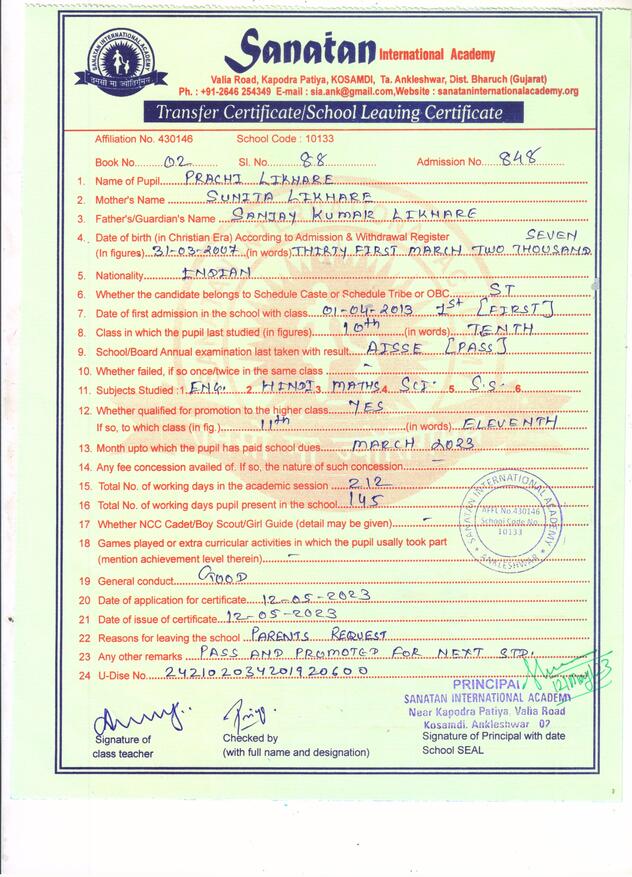 SANATAN INTERNATIONAL ACADEMY
तमसो मा ज्योतिर्गमय
Sanatan International Academy
Valia Road, Kapodra Patiya, KOSAMDI, Ta. Ankleshwar, Dist. Bharuch (Gujarat)
Ph. : +91-2646 254349 E-mail : sia.ank@gmail.com,Website : sanataninternationalacademy.org
Transfer Certificate/School Leaving Certificate
Affiliation No. 430146 School Code : 10133
Book No. 02 Sl. No. 88 Admission No. 848
1. Name of Pupil PRACHI LIKHARE
2. Mother's Name SUNITA LIKHARE
3. Father's/Guardian's Name SANJAY KUMAR LIKHARE
4. Date of birth (in Christian Era) According to Admission & Withdrawal Register SEVEN
(In figures) 31-03-2007 (in words) THIRTY FIRST MARCH TWO THOUSAND
5. Nationality INDIAN
6. Whether the candidate belongs to Schedule Caste or Schedule Tribe or OBC ST
7. Date of first admission in the school with class 01-04-2013 1st [FIRST]
8. Class in which the pupil last studied (in figures) 10th (in words) TENTH
9. School/Board Annual examination last taken with result AISSE [PASS]
10. Whether failed, if so once/twice in the same class -
11. Subjects Studied : 1. ENG. 2. HINDI 3. MATHS 4. SCI. 5. S.S. 6.
12. Whether qualified for promotion to the higher class YES
If so, to which class (in fig.) 11th (in words) ELEVENTH
13. Month upto which the pupil has paid school dues MARCH 2023
14. Any fee concession availed of. If so, the nature of such concession -
15. Total No. of working days in the academic session 212
16. Total No. of working days pupil present in the school 145
17. Whether NCC Cadet/Boy Scout/Girl Guide (detail may be given) -
18 Games played or extra curricular activities in which the pupil usally took part
(mention achievement level therein) -
19 General conduct GOOD
20 Date of application for certificate 12-05-2023
21 Date of issue of certificate 12-05-2023
22 Reasons for leaving the school PARENTS REQUEST
23 Any other remarks PASS AND PROMOTED FOR NEXT STD.
24 U-Dise No. 242102034201920600
SANATAN INTERNATIONAL ACADEMY
AFFL No.430146
School Code No.
10133
ANKLESHWAR
12/May/23
PRINCIPAL
SANATAN INTERNATIONAL ACADEMY
Near Kapodra Patiya, Valia Road
Kosamdi, Ankleshwar 02
Signature of class teacher
Checked by
(with full name and designation)
Signature of Principal with date
School SEAL